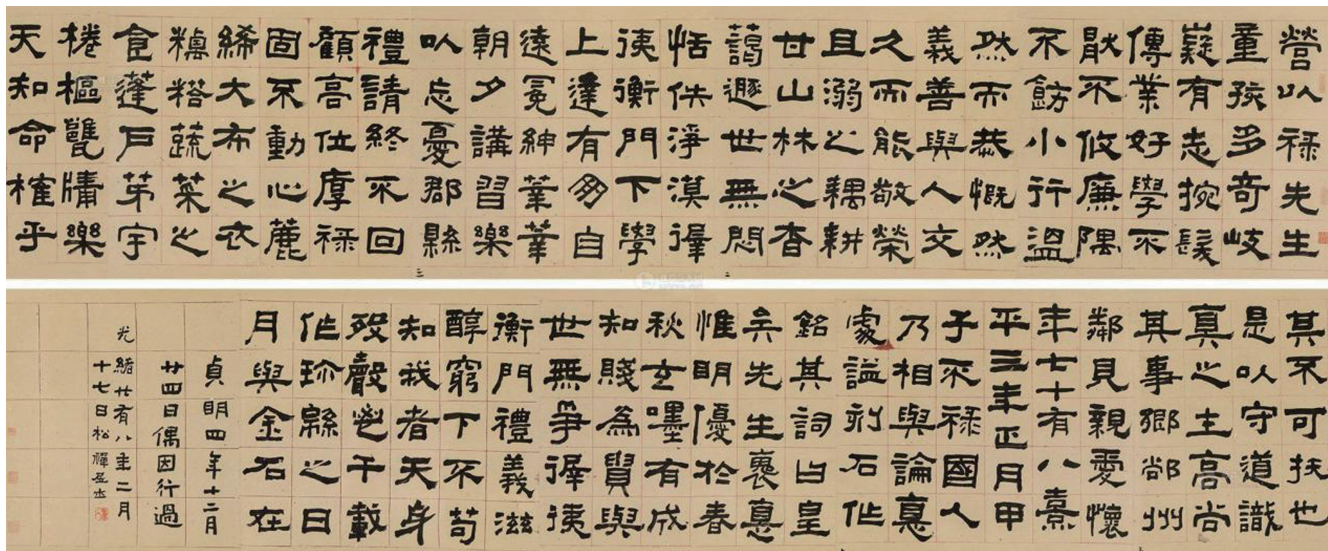 營以祿先生
童孩多奇岐
嶷有志捥髮
傳業好學不
厭不攸廉隅
不飭小行溫
然而恭慨然
義善與人交
久而能敬榮
且溺之耦耕
甘山林之杳
藹遯世無悶
恬佚淨漠徲
㣢衡門下學
上達有朋自
遠冕紳莘莘
朝夕講習樂
以忘憂郡縣
禮請終不回
顧高位厚祿
固不動心麤
絺大布之衣
糲荅蔬菜之
食蓬戶茅宇
棬樞甕牖樂
天知命榷乎
其不可扶也
是以守道識
真之士高尚
其事鄉黨州
鄰見親愛懷
年七十有八熹
平三年正月甲
子不祿國人
乃相與論悳
處謚刻石作
銘其詞曰皇
矣先生襄悳
惟明優於春
秋玄嘿有成
知賤為貴與
世無爭徲㣢
衡門禮義滋
醇窮下不苟
知我者天身
歿聲鬯千載
作珍綿之日
月與金石在
貞明四年十二月
廿四日偶因行過
光緒廿有八年二月
十七日松禪